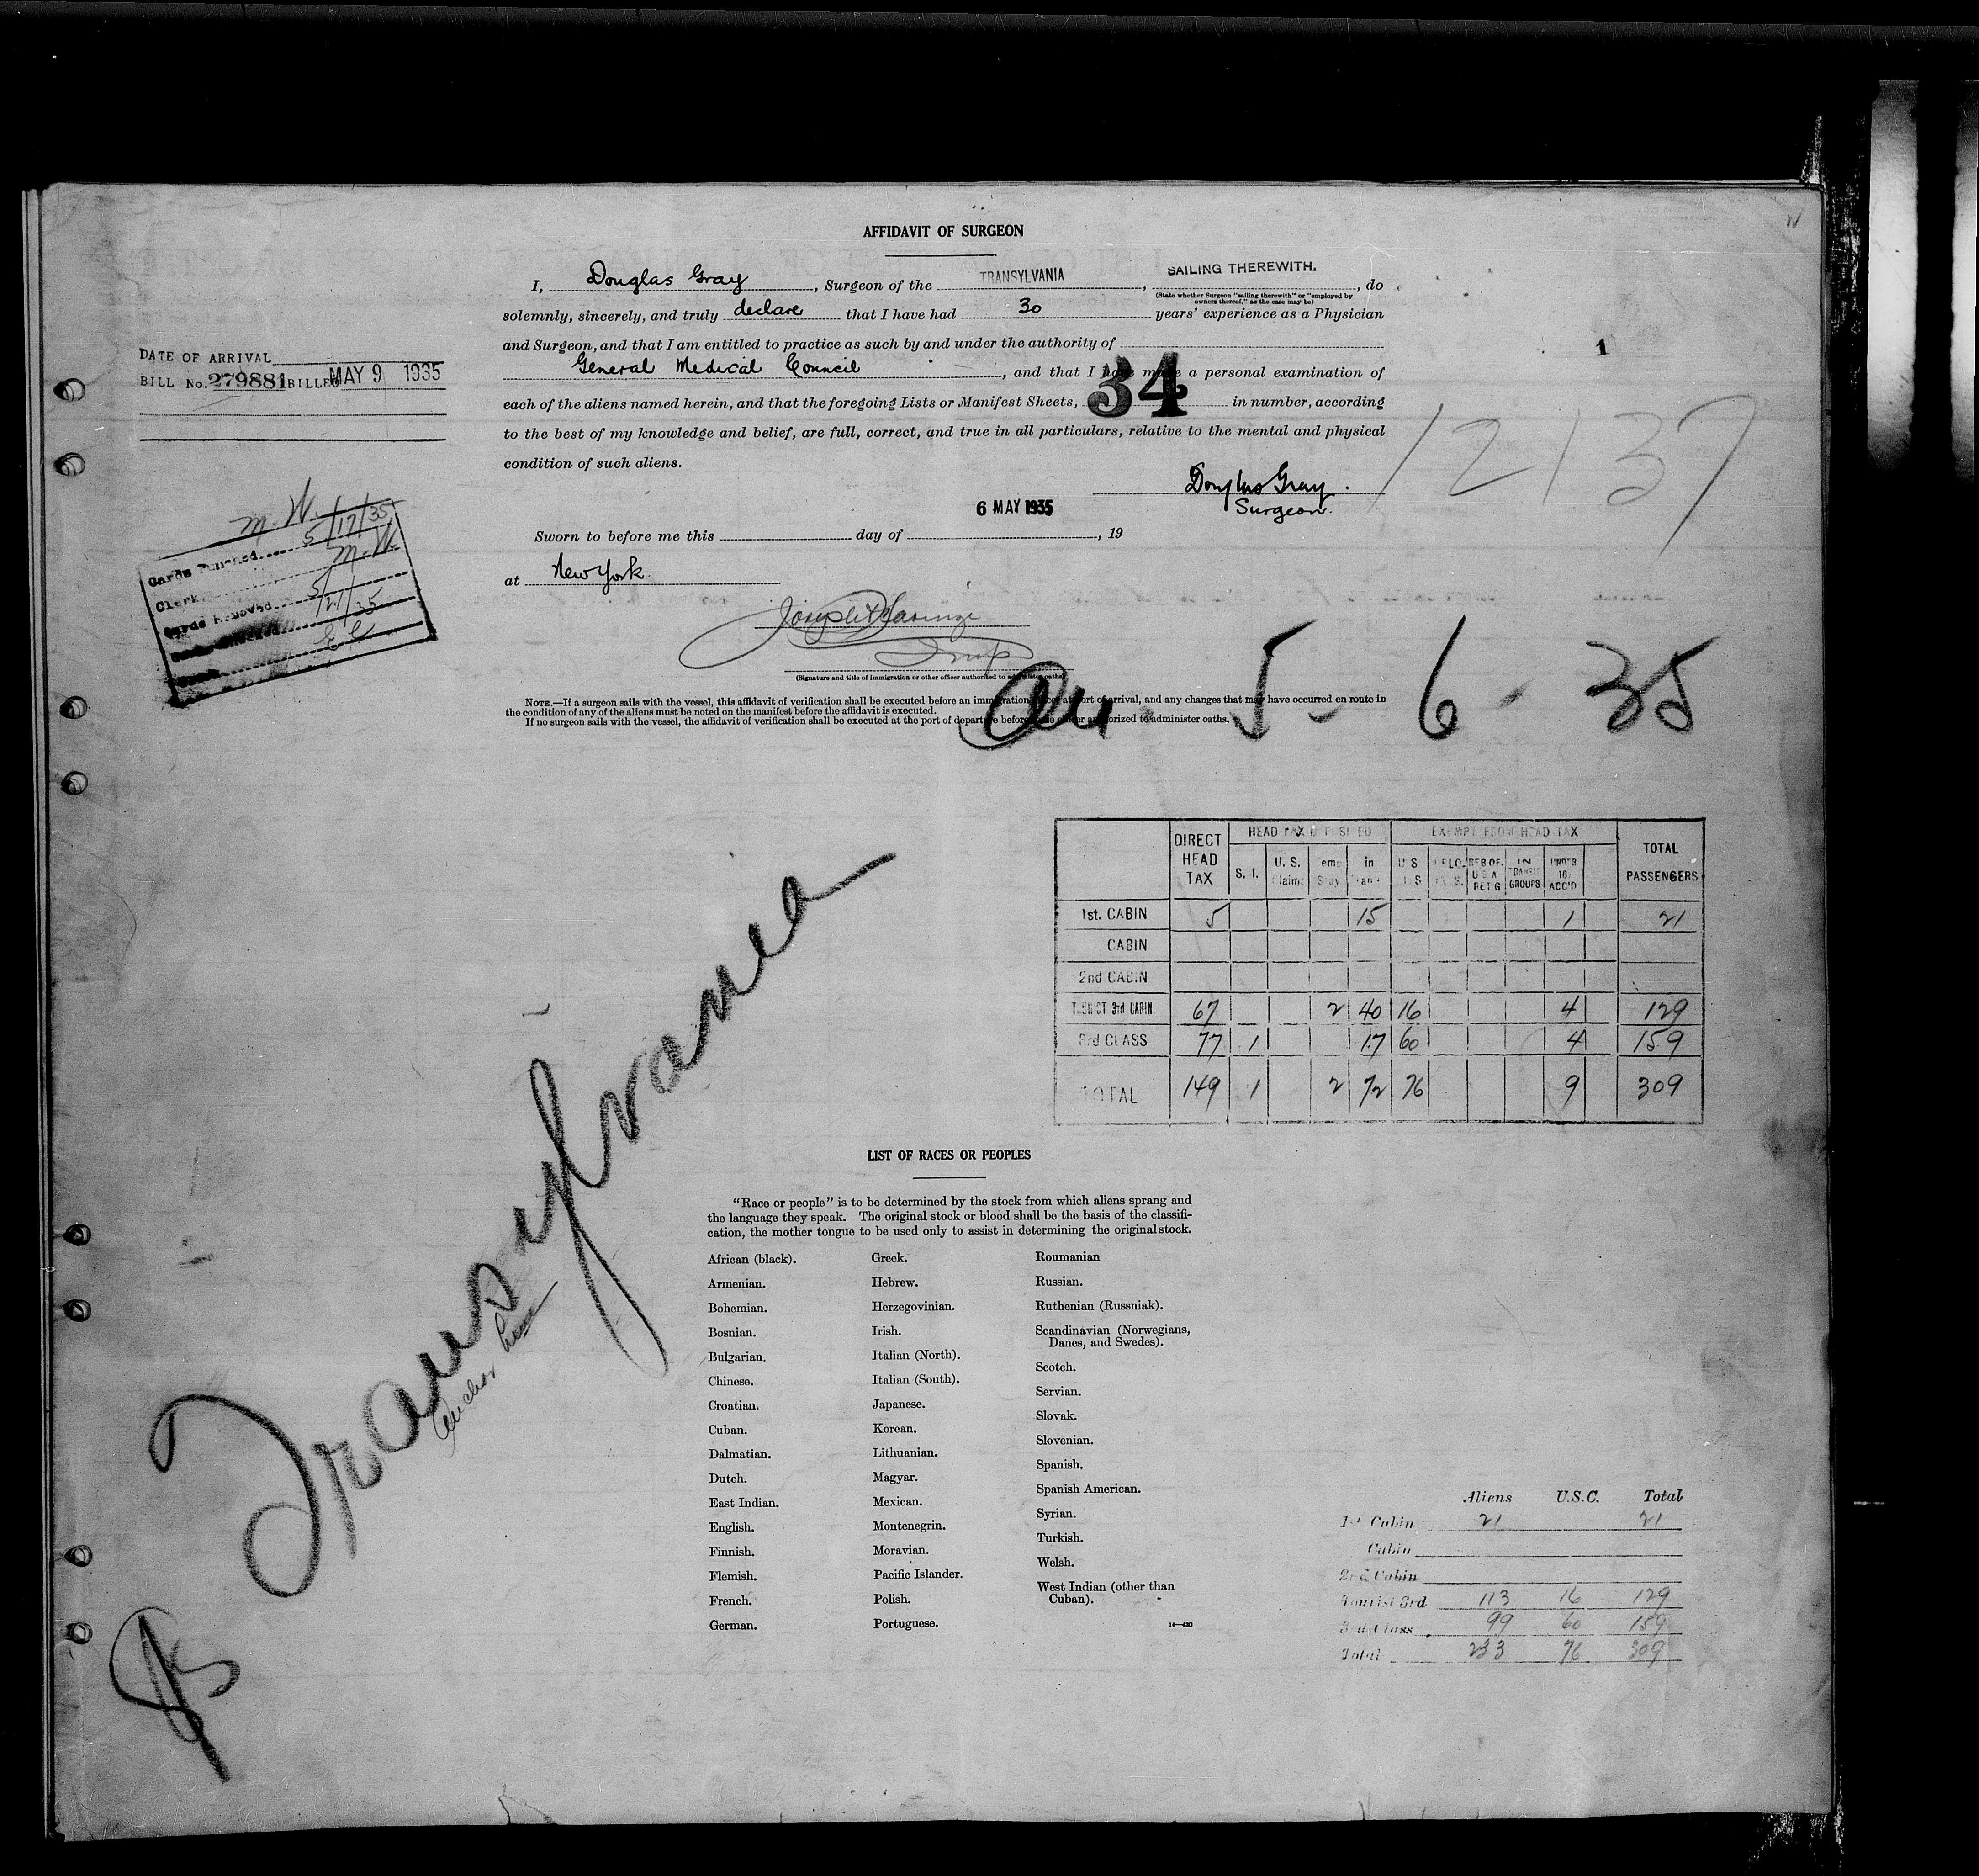 AFFIDAVIT OF SURGEON
I, Douglas Gray, Surgeon of the TRANSYLVANIA, SAILING THEREWITH., do
(State whether Surgeon "sailing therewith" or "employed by owners thereof," as the case may be)
solemnly, sincerely, and truly declare that I have had 30 years' experience as a Physician
and Surgeon, and that I am entitled to practice as such by and under the authority of
General Medical Council, and that I have made a personal examination of
each of the aliens named herein, and that the foregoing Lists or Manifest Sheets, 34 in number, according
to the best of my knowledge and belief, are full, correct, and true in all particulars, relative to the mental and physical
condition of such aliens.
Douglas Gray.
Surgeon.
6 MAY 1935
Sworn to before me this day of , 19
at New York.
(Signature and title of immigration or other officer authorized to administer oaths)
NOTE.—If a surgeon sails with the vessel, this affidavit of verification shall be executed before an immigration officer at port of arrival, and any changes that may have occurred en route in
the condition of any of the aliens must be noted on the manifest before the affidavit is executed.
If no surgeon sails with the vessel, the affidavit of verification shall be executed at the port of departure before some officer authorized to administer oaths.
DATE OF ARRIVAL
BILL No. 279881 BILLED MAY 9 1935
1
12137
M. W.
Cards Punched 5/17/35
Clerk M. W.
Cards Removed 5/21/35
5 - 6 - 35
DIRECT HEAD TAX HEAD TAX DEPOSITED EXEMPT FROM HEAD TAX TOTAL PASSENGERS
S. I. U. S. Claims in U S IN TRANSIT GROUPS UNDER 16 ACC'D
1st. CABIN 5 15 1 21
CABIN
2nd CABIN
TOURIST 3rd CABIN 67 2 40 16 4 129
3rd CLASS 77 1 17 60 4 159
TOTAL 149 1 2 72 76 9 309
Transylvania
Anchor Line
LIST OF RACES OR PEOPLES
"Race or people" is to be determined by the stock from which aliens sprang and
the language they speak. The original stock or blood shall be the basis of the classifi-
cation, the mother tongue to be used only to assist in determining the original stock.
African (black).
Armenian.
Bohemian.
Bosnian.
Bulgarian.
Chinese.
Croatian.
Cuban.
Dalmatian.
Dutch.
East Indian.
English.
Finnish.
Flemish.
French.
German.
Greek.
Hebrew.
Herzegovinian.
Irish.
Italian (North).
Italian (South).
Japanese.
Korean.
Lithuanian.
Magyar.
Mexican.
Montenegrin.
Moravian.
Pacific Islander.
Polish.
Portuguese.
Roumanian
Russian.
Ruthenian (Russniak).
Scandinavian (Norwegians,
Danes, and Swedes).
Scotch.
Servian.
Slovak.
Slovenian.
Spanish.
Spanish American.
Syrian.
Turkish.
Welsh.
West Indian (other than
Cuban).
Aliens U.S.C. Total
1st Cabin 21 21
Cabin
2nd Cabin
Tourist 3rd 113 16 129
3rd Class 99 60 159
Total 233 76 309